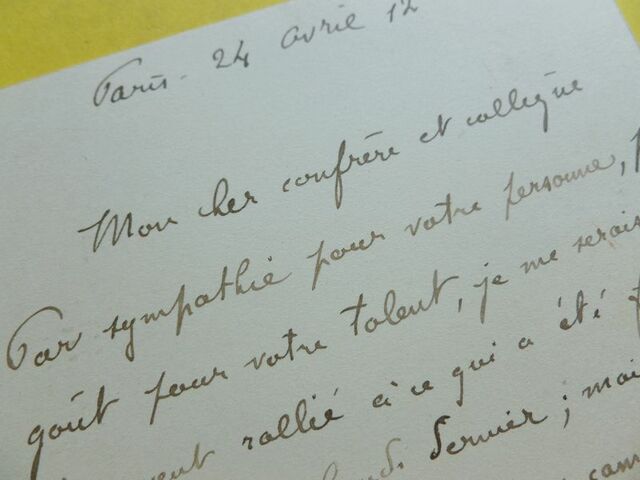 Paris. 24 avril 12
Mon cher confrère et collègue
Par sympathie pour votre personne, p
goût pour votre talent, je me serais
ent rallié à ce qui a été
dernier ; mais